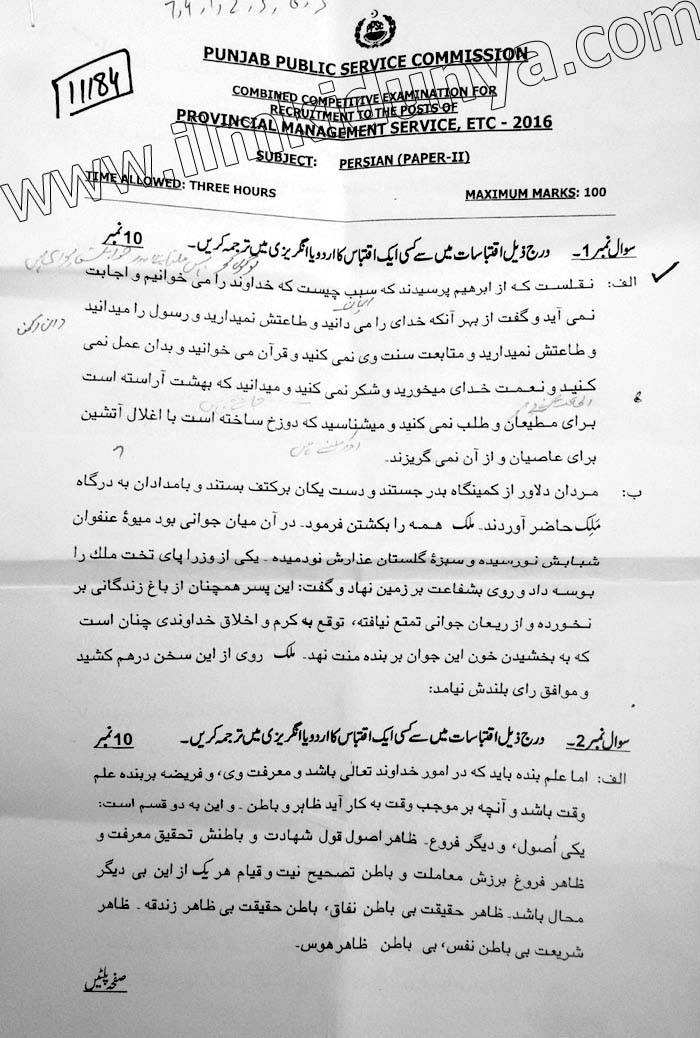 11184
PUNJAB PUBLIC SERVICE COMMISSION
COMBINED COMPETITIVE EXAMINATION FOR
RECRUITMENT TO THE POSTS OF
PROVINCIAL MANAGEMENT SERVICE, ETC - 2016
SUBJECT: PERSIAN (PAPER-II)
TIME ALLOWED: THREE HOURS MAXIMUM MARKS: 100
www.ilmkidunya.com
سوال نمبر 1۔ درج ذیل اقتباسات میں سے کسی ایک اقتباس کا اردو یا انگریزی میں ترجمہ کریں۔ 10 نمبر
الف: نقلست که از ابرهیم پرسیدند که سبب چیست که خداوند را می خوانیم و اجابت
نمی آید و گفت از بهر آنکه خدای را می دانید و طاعتش نمیدارید و رسول را میدانید
و طاعتش نمیدارید و متابعت سنت وی نمی کنید و قرآن می خوانید و بدان عمل نمی
کنید و نعمت خدای میخورید و شکر نمی کنید و میدانید که بهشت آراسته است
برای مطیعان و طلب نمی کنید و میشناسید که دوزخ ساخته است با اغلال آتشین
برای عاصیان و از آن نمی گریزند۔
ب: مردان دلاور از کمینگاه بدر جستند و دست یکان برکتف بستند و بامدادان به درگاه
مَلِک حاضر آوردند۔ ملک همه را بکشتن فرمود۔ در آن میان جوانی بود میوۀ عنفوان
شبابش نورسیده و سبزۀ گلستان عذارش نودمیده ۔ یکی از وزرا پای تخت ملك را
بوسه داد و روی بشفاعت بر زمین نهاد و گفت: این پسر همچنان از باغ زندگانی بر
نخورده و از ریعان جوانی تمتع نیافته، توقع به کرم و اخلاق خداوندی چنان است
که به بخشیدن خون این جوان بر بنده منت نهد۔ ملک روی از این سخن درهم کشید
و موافق رای بلندش نیامد:
سوال نمبر 2۔ درج ذیل اقتباسات میں سے کسی ایک اقتباس کا اردو یا انگریزی میں ترجمہ کریں۔ 10 نمبر
الف: اما علم بنده باید که در امور خداوند تعالٰی باشد و معرفت وی، و فریضه بر بنده علم
وقت باشد و آنچه بر موجب وقت به کار آید ظاهر و باطن ۔ و این به دو قسم است:
یکی اُصول، و دیگر فروع۔ ظاهر اصول قول شهادت و باطنش تحقیق معرفت و
ظاهر فروغ برزش معاملت و باطن تصحیح نیت و قیام هر یک از این بی دیگر
محال باشد۔ ظاهر حقیقت بی باطن نفاق، باطن حقیقت بی ظاهر زندقه ۔ ظاهر
شریعت بی باطن نفس، بی باطن ظاهر هوس۔
صفحہ پلٹیں